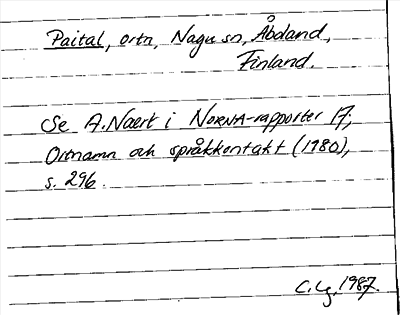 Paital, ortn, Nagu sn, Åboland,
Finland.
Se A. Naert i NORNA-rapporter 17,
Ortnamn och språkkontakt (1980),
s. 296.
C. Lg, 1987.